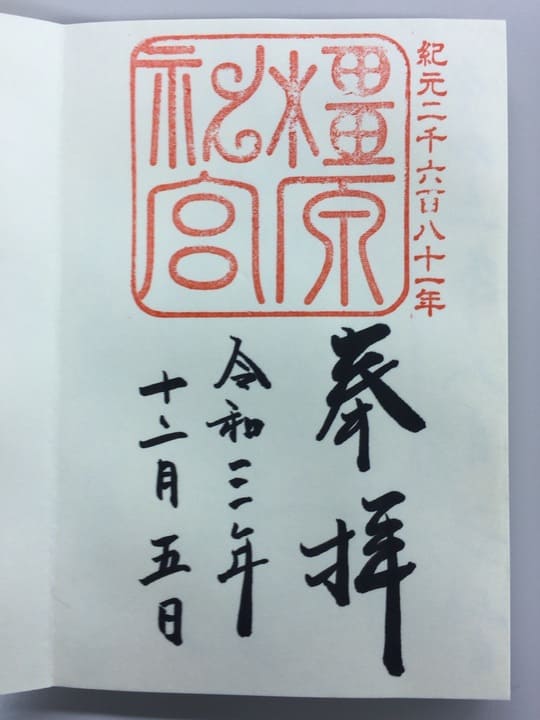 紀元二千六百八十一年
橿原
神宮
奉拝
令和三年
十二月五日